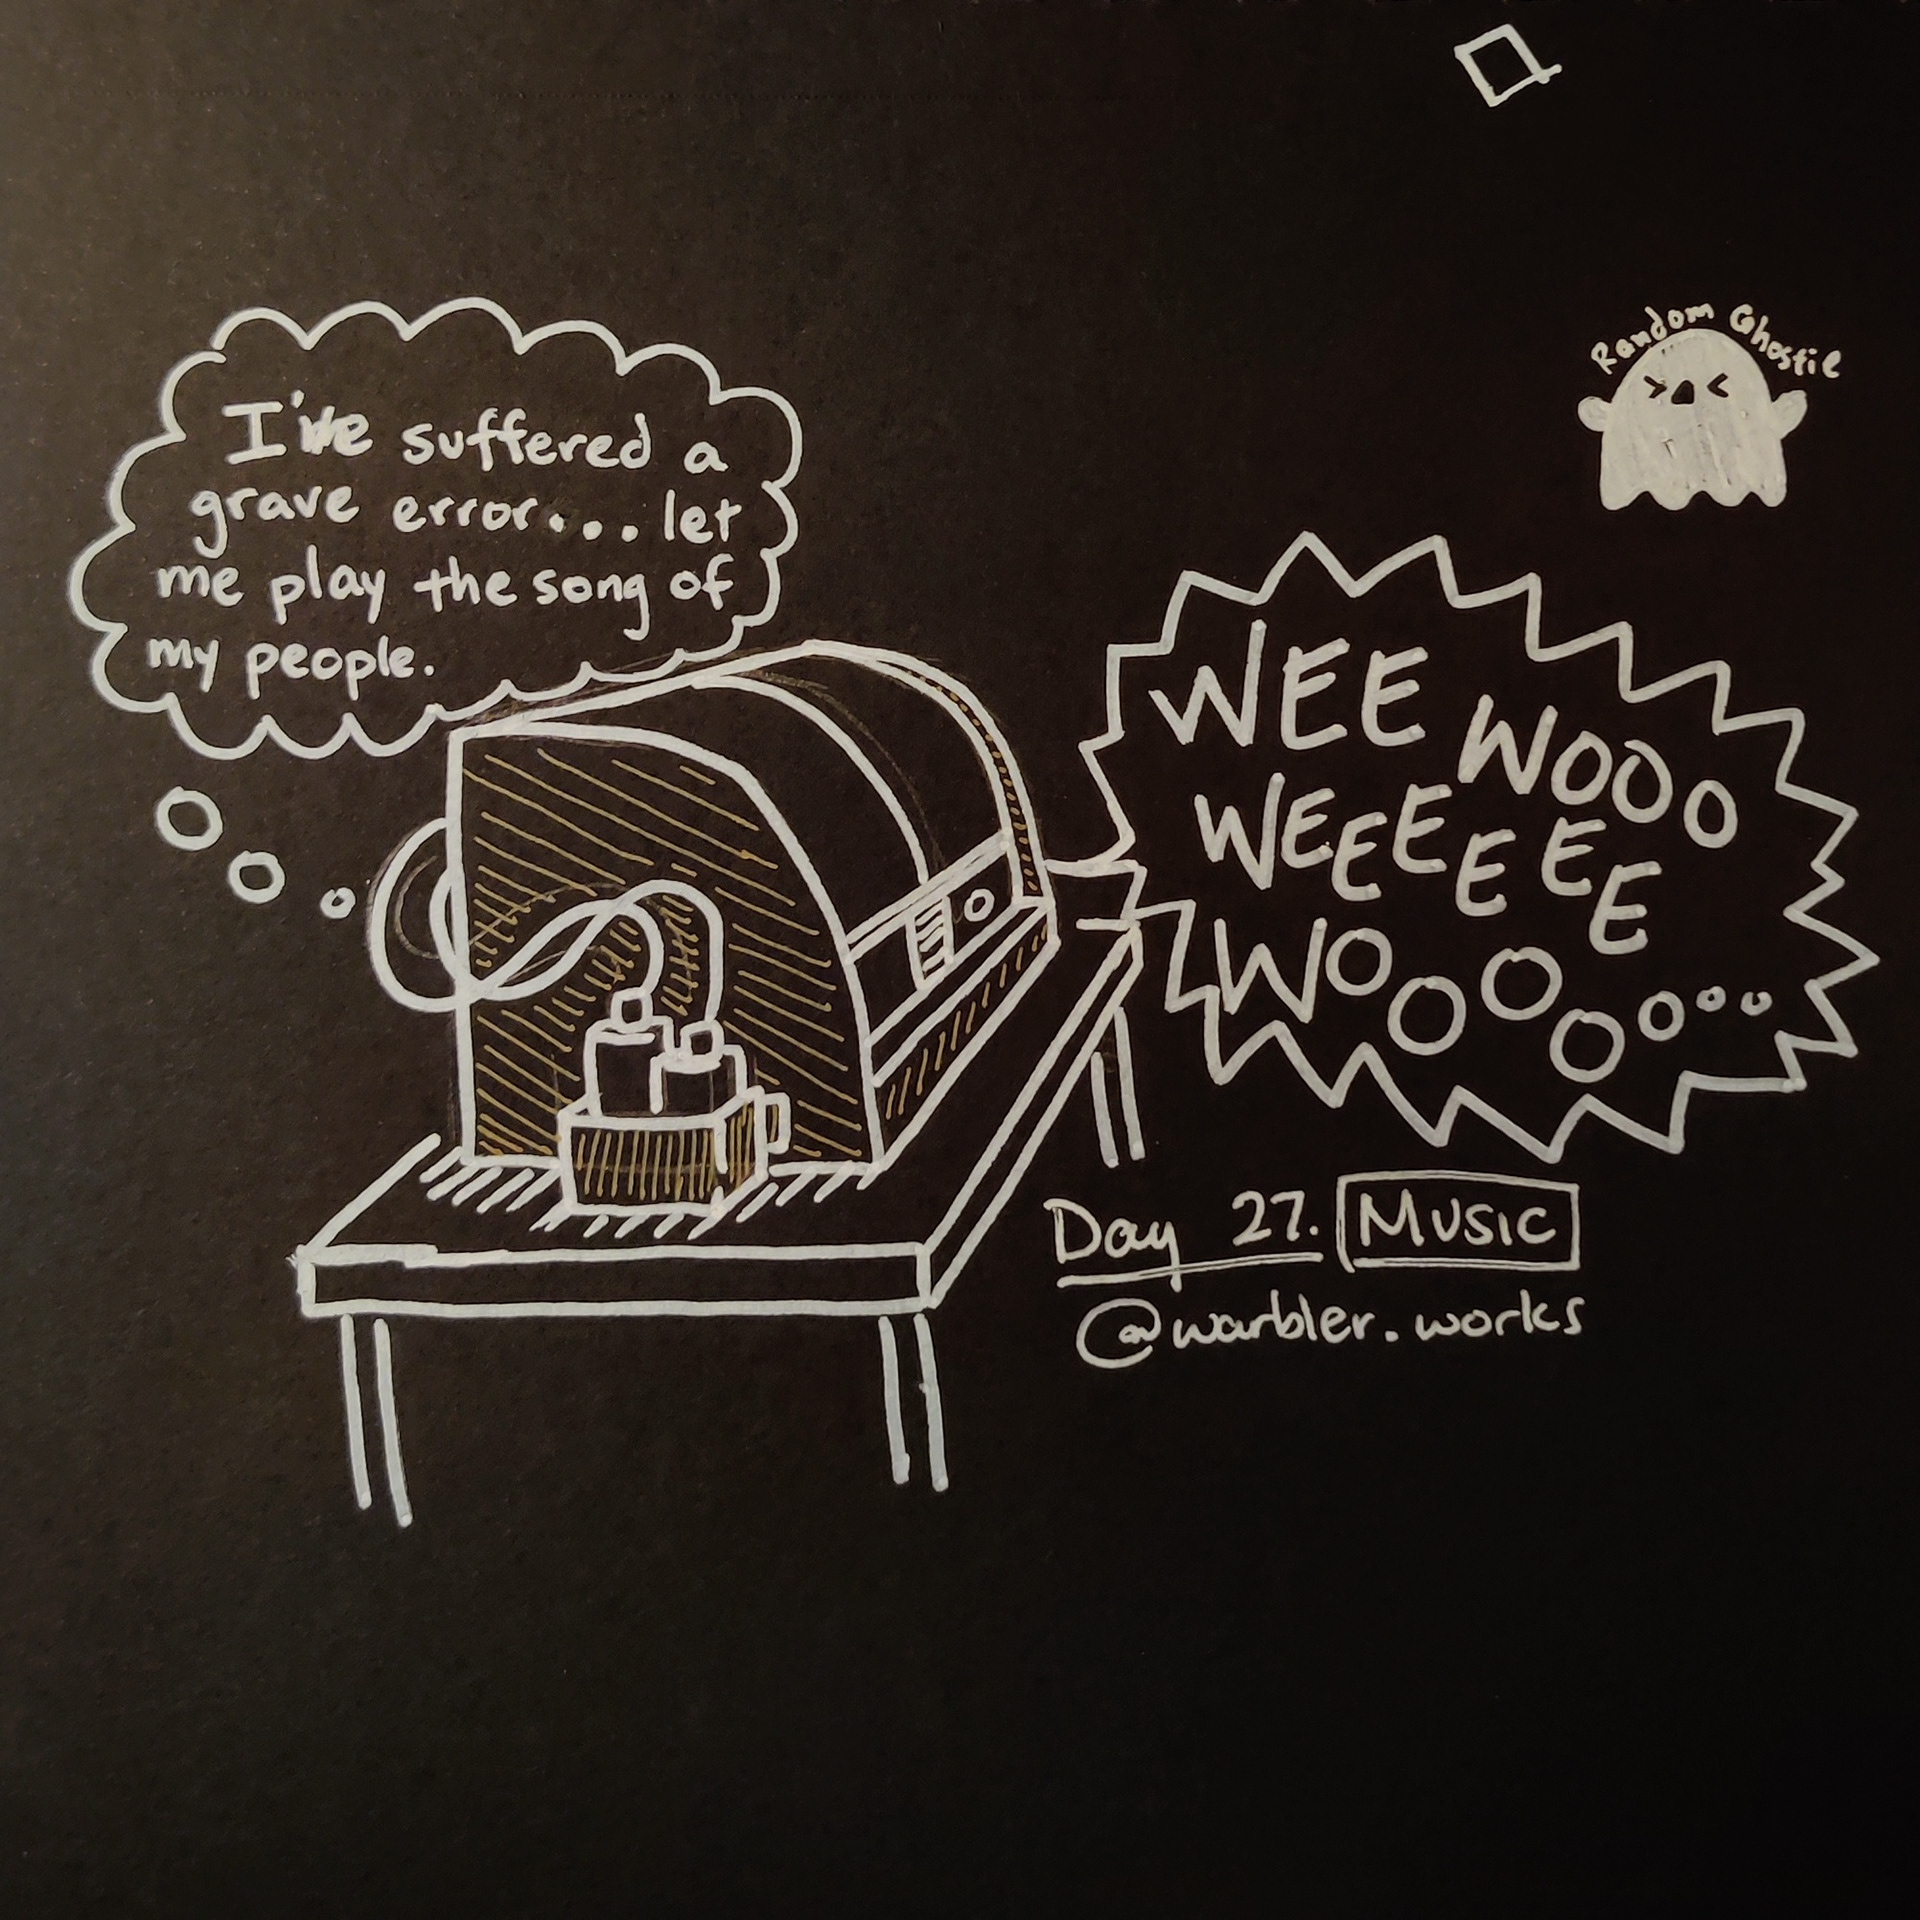 I've suffered a
grave error... let
me play the song of
my people.
Random Ghostie
WEE WOOO
WEEEEEE
WOOOOooo
Day 27. MUSIC
@warbler.works